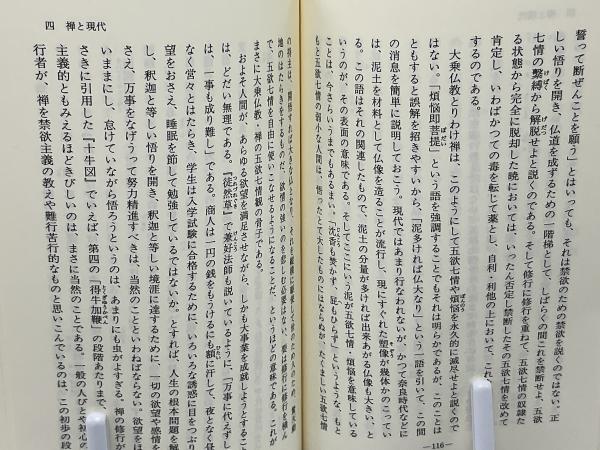 誓って断ぜんことを願う」とはいっても、それは禁欲のための禁欲を説くのではない。正
しい悟りを開き、仏道を成ずるための一階梯として、しばらくの間これを禁断せよ、五欲
七情の繫縛から解脱せよと説くのである。そして修行に修行を重ねて、五欲七情の奴隷た
る状態から完全に脱却した暁においては、いったん否定し禁断したその五欲七情を改めて
肯定し、いわばかつての毒を転じて薬とし、自利・利他の上において、これ
するのである。
大乗仏教とりわけ禅は、このようにして五欲七情や煩悩を永久的に滅尽せよと説くので
はない。「煩悩即菩提」という語を強調することでもそれは明らかであるが、この
ともすると誤解を招きやすいから、「泥多ければ仏大なり」という一語を引いて、この間
の消息を簡単に説明しておこう。現代ではあまり行なわれないが、かつて奈良時代などに
は、泥土を材料として仏像を造ることが流行し、現にすぐれた塑像が幾体かのこってい
る。この語はそれの関連したもので、泥土の分量が多ければ出来あがる仏像も大きい、と
いうのが、その表面の意味である。そしてここにいう泥が五欲七情、煩悩を意味している
ことは、今さらいうまでもあるまい。「沈香も焚かず、屁もひらず」というような、もと
もと五欲七情の弱小な人間は、悟ったとて大したものにはならぬが、たくましい五欲七情
116
四 禅と現代
の持主は、
地のはたらきをするものだ、欲情の強いのを悲しむ必要はない、要は修行に修行を積ん
で、五欲七情を自由に使いこなせるようになることだ、というほどの意味である。これが
まさに大乗仏教、禅の五欲七情観の骨子である。
およそ人間が、あらゆる欲望を満足させながら、しかも大事業を成就しようとすること
は、どだい無理である。『徒然草』で兼好法師も説いているように、「万事に代えずして
は、一事も成り難し」である。商人は一円の銭をもうけるにも額に汗して、夜となく昼と
なく堂々とはたらき、学生は入学試験に合格するために、いろいろな誘惑に目をつぶり
望をおさえ、睡眠を節して勉強しているではないか。とすれば、人生の根本問題を解
し、釈迦と等しい悟りを開き、釈迦と等しい境涯に達するために、一切の欲望や感情を
さえ、万事をなげうって努力精進すべきは、当然のことといわねばならない。欲望をほ
いままにし、怠けていながら悟ろうというのは、あまりにも虫がよすぎる。禅の修行が
さきに引用した『十牛図』でいえば、第四の「得牛加鞭」の段階あたりまで、
主義的ともみえるほどきびしいのは、まさに当然のことである。一般の人びとや初心の
行者が、禅を禁欲主義の教えや難行苦行的なものと思いこんでいるのは、この初歩の段